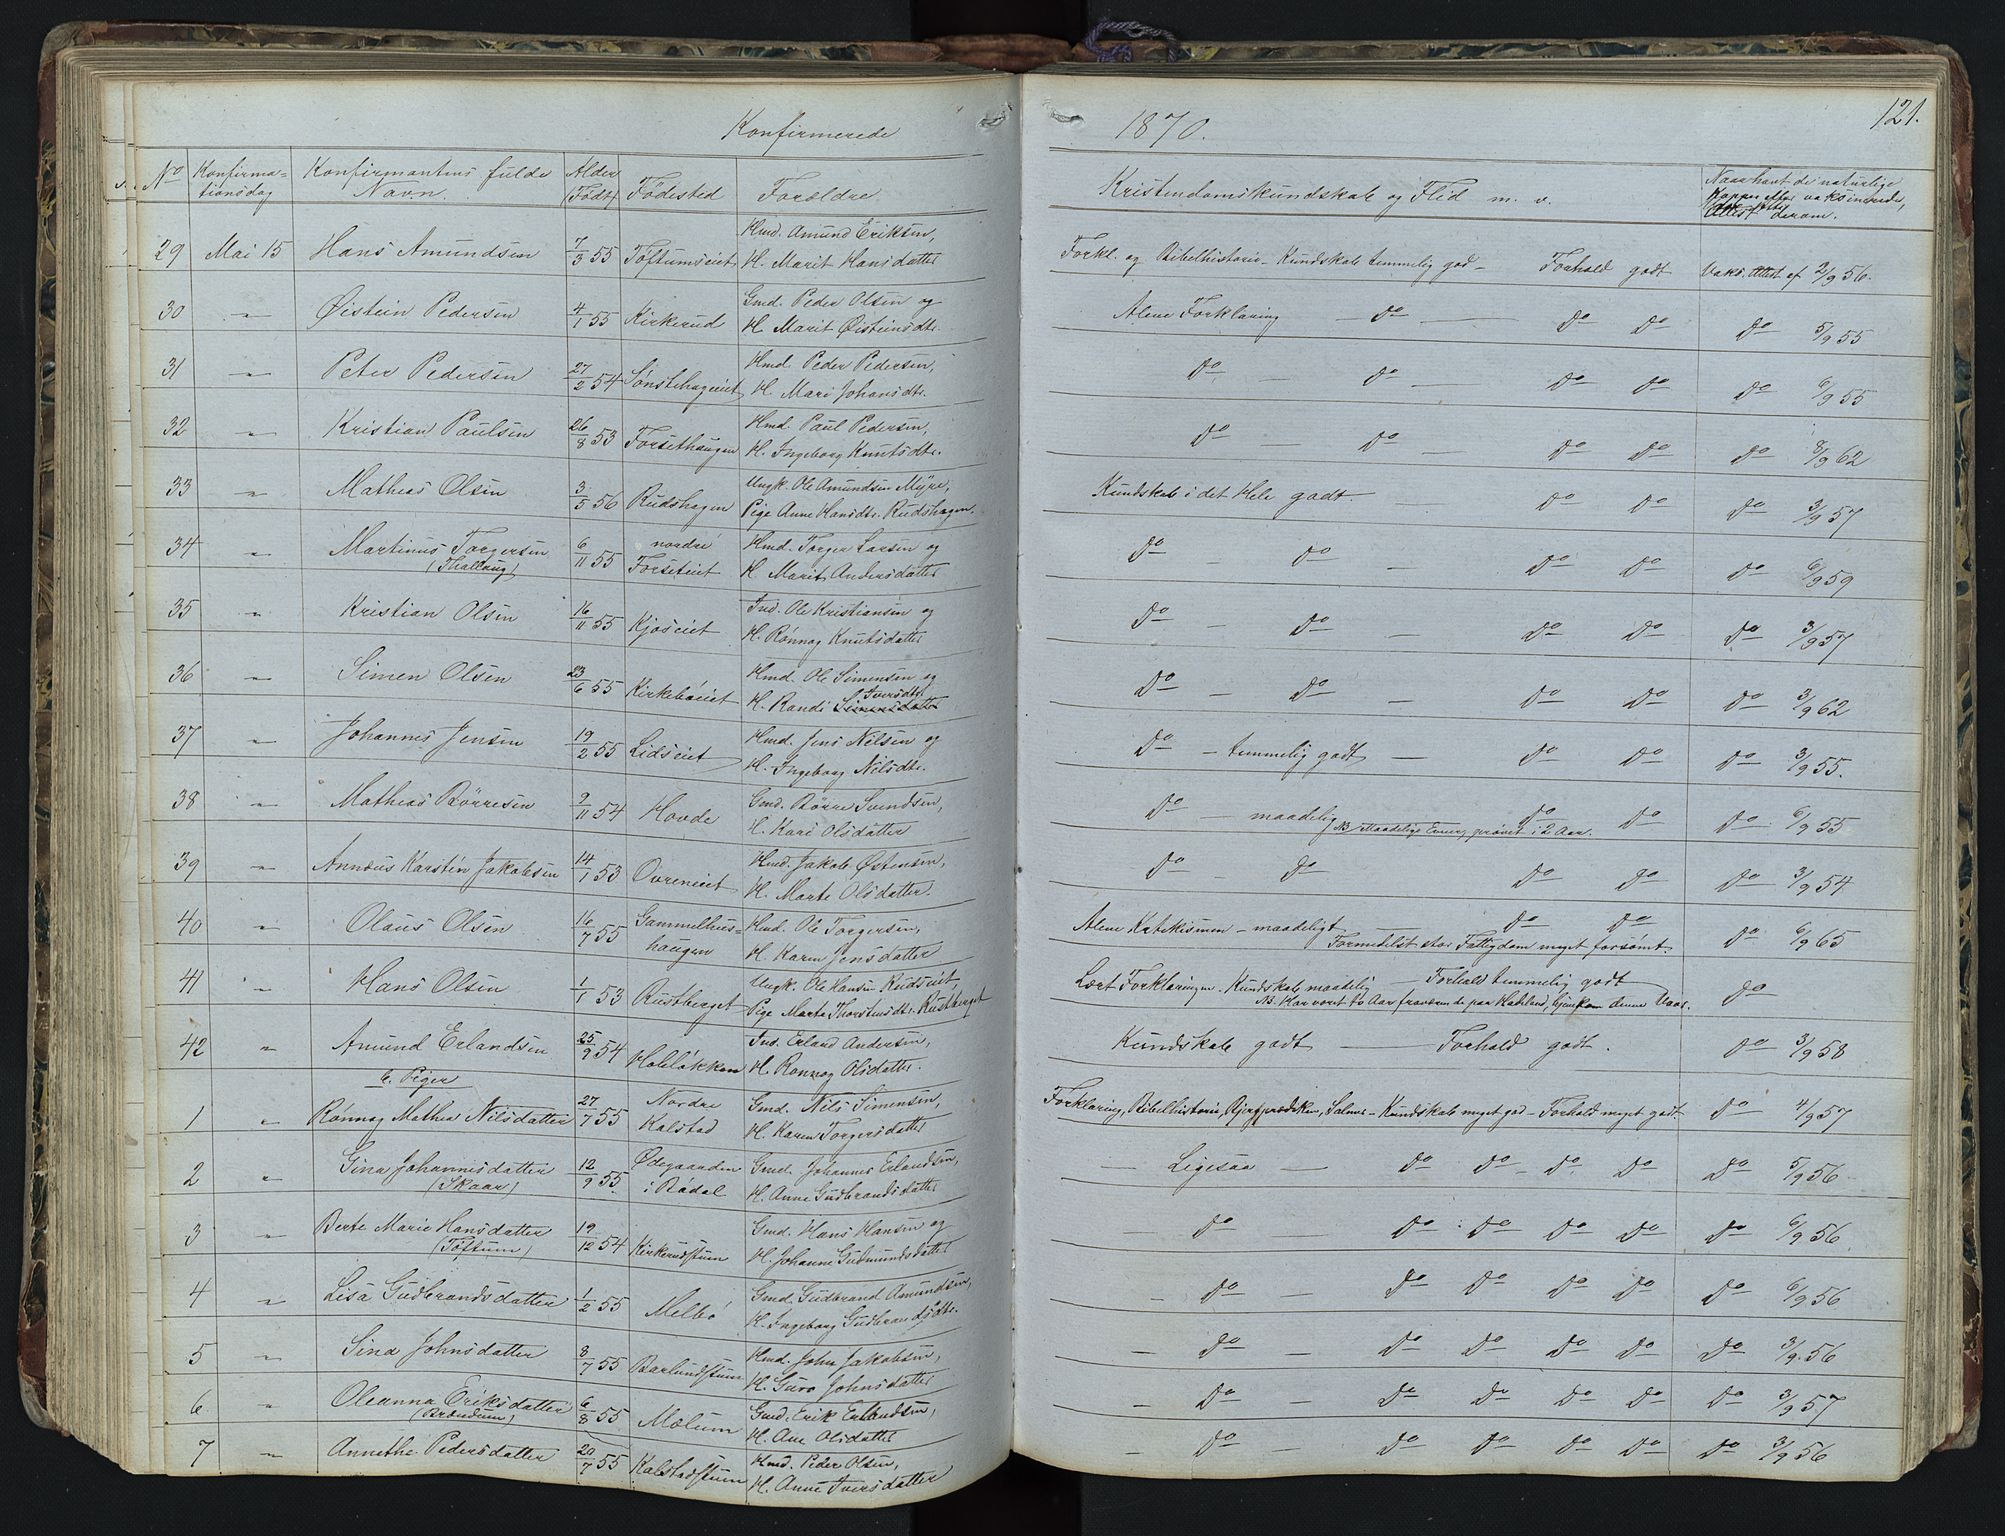 Konfirmerede
1870.
121.
No
Konfirma-
tionsdag
Konfirmantens fulde
Navn.
Alder
(Født)
Fødested
Forældre
Kristendomskundskab og Flid m. v.
Naar havt de naturlige
Kopper eller vaksinerede,
Attest derom.
29 Mai 15 Hans Amundsen 7/3 55 Toftumseiet Hmd. Amund Eriksen,
H. Marit Hansdatter
Forkl. og Bibelhistorie - Kundskab temmelig god - Forhold godt Vaks. Attest af 2/9 56.
30 " Øistein Pedersen 4/1 55 Kirkerud Gmd. Peder Olsen og
H. Marit Øisteinsdtr.
Alene Forklaring - Do - Do Do Do 5/9 55
31 " Peter Pedersen 27/2 54 Sønstehageeiet Hmd. Peder Pedersen,
H. Mari Johansdtr.
Do - Do - Do Do Do 6/9 55
32 " Kristian Paulsen 26/8 53 Forsethaugen Hmd. Paul Pedersen,
H. Ingeborg Knutsdtr.
Do - Do - Do Do Do 8/9 62
33 " Mathias Olsen 3/5 56 Rudshagen Ungk. Ole Amundsen Myre,
Pige Anne Hansdtr. Rudshagen.
Kundskab i det Hele godt - Do Do Do 3/9 57
34 " Martinus Torgersen 6/11 55 nordre Hmd. Torger Larsen og
(Thallaug) Forseteiet H. Marit Andersdatter
Do - Do - Do Do Do 6/9 59
35 " Kristian Olsen 16/11 55 Kjoseiet Ind. Ole Kristiansen og
H. Rønnog Knutsdatter
Do - Do - Do Do Do 3/9 57
36 " Simen Olsen 23/6 55 Kirkebøeiet Hmd. Ole Simensen og
Iversdtr.
H. Randi Simensdatter
Do - Do - Do Do Do 3/9 62
37 " Johannes Jensen 19/2 55 Lidseiet Hmd. Jens Nilsen og
H. Ingeborg Nilsdtr.
Do - temmelig godt - Do Do Do 3/9 55.
38 " Mathias Børresen 9/11 54 Hovde Gmd. Børre Svendsen,
H. Kari Olsdatter
Do - maadelig Do Do Do 6/9 55
NB Maadelige Evner, prøvet i 2 Aar.
39 " Annæus Karsten Jakobsen 14/1 53 Ovreneiet Hmd. Jakob Østensen,
H. Marte Olsdatter.
Do - Do Do Do Do 3/9 54
40 " Olaus Olsen 16/7 55 Gammelhus- Hmd. Ole Torgersen,
haugen H. Karen Jensdatter
Alene Katekismen - maadeligt - Do Do Do 6/9 65
Formedelst stor Fattigdom meget forsømt.
41 " Hans Olsen 1/1 53 Rustberget Ungk. Ole Hansen Rudseiet,
Pige Marte Thorstensdtr. Rustberget
Lært Forklaringen. Kundskab maadelig - Forhold temmelig godt Do
42 " Amund Erlandsen 25/9 54 Holeløkken Ind. Erland Andersen,
H. Rønnog Olsdatter.
Kundskab godt - Forhold godt. Do 3/9 58
b. Piger
1 " Rønnog Mathea Nilsdatter 27/7 55 Nordre Gmd. Nils Simensen,
Kalstad H. Karen Torgersdatter
Forklaring, Bibelhistorie, Bjergprædiken, Salmer - Kundskab meget god - Forhold meget godt Do 4/9 57
2 " Gina Johannesdatter 12/9 55 Ødegaarden Gmd. Johannes Erlandsen,
(Skaar) i Bødal H. Anne Gudbrandsdatter
- Ligesaa - Do Do - Do Do Do 5/9 56
3 " Berte Marie Hansdatter 19/12 54 Kirkerudstuen Gmd. Hans Hansen og
(Toftum) H. Johanne Gudmundsdatter
Do - Do Do Do Do Do 6/9 56.
4 " Lisa Gudbrandsdatter 1/2 55 Melbø Gmd. Gudbrand Amundsen,
H. Ingeborg Gudbrandsdtr.
- Do - Do Do Do Do Do 6/9 56
5 " Sina Johnsdatter 8/7 55 Baarlundstuen Hmd. John Jakobsen,
H. Guro Johnsdatter
- Do - Do Do Do Do Do 3/9 56
6 " Oleanna Eriksdatter 6/8 55 Mælum Gmd. Erik Erlandsen,
(Brændum) H. Ane Olsdatter
- Do - Do Do Do Do Do 3/9 57
7 " Annethe Pedersdatter 20/7 55 Kalstadstuen Hmd. Peder Olsen,
H. Anne Iversdatter
- Do - Do Do Do Do Do 3/9 56